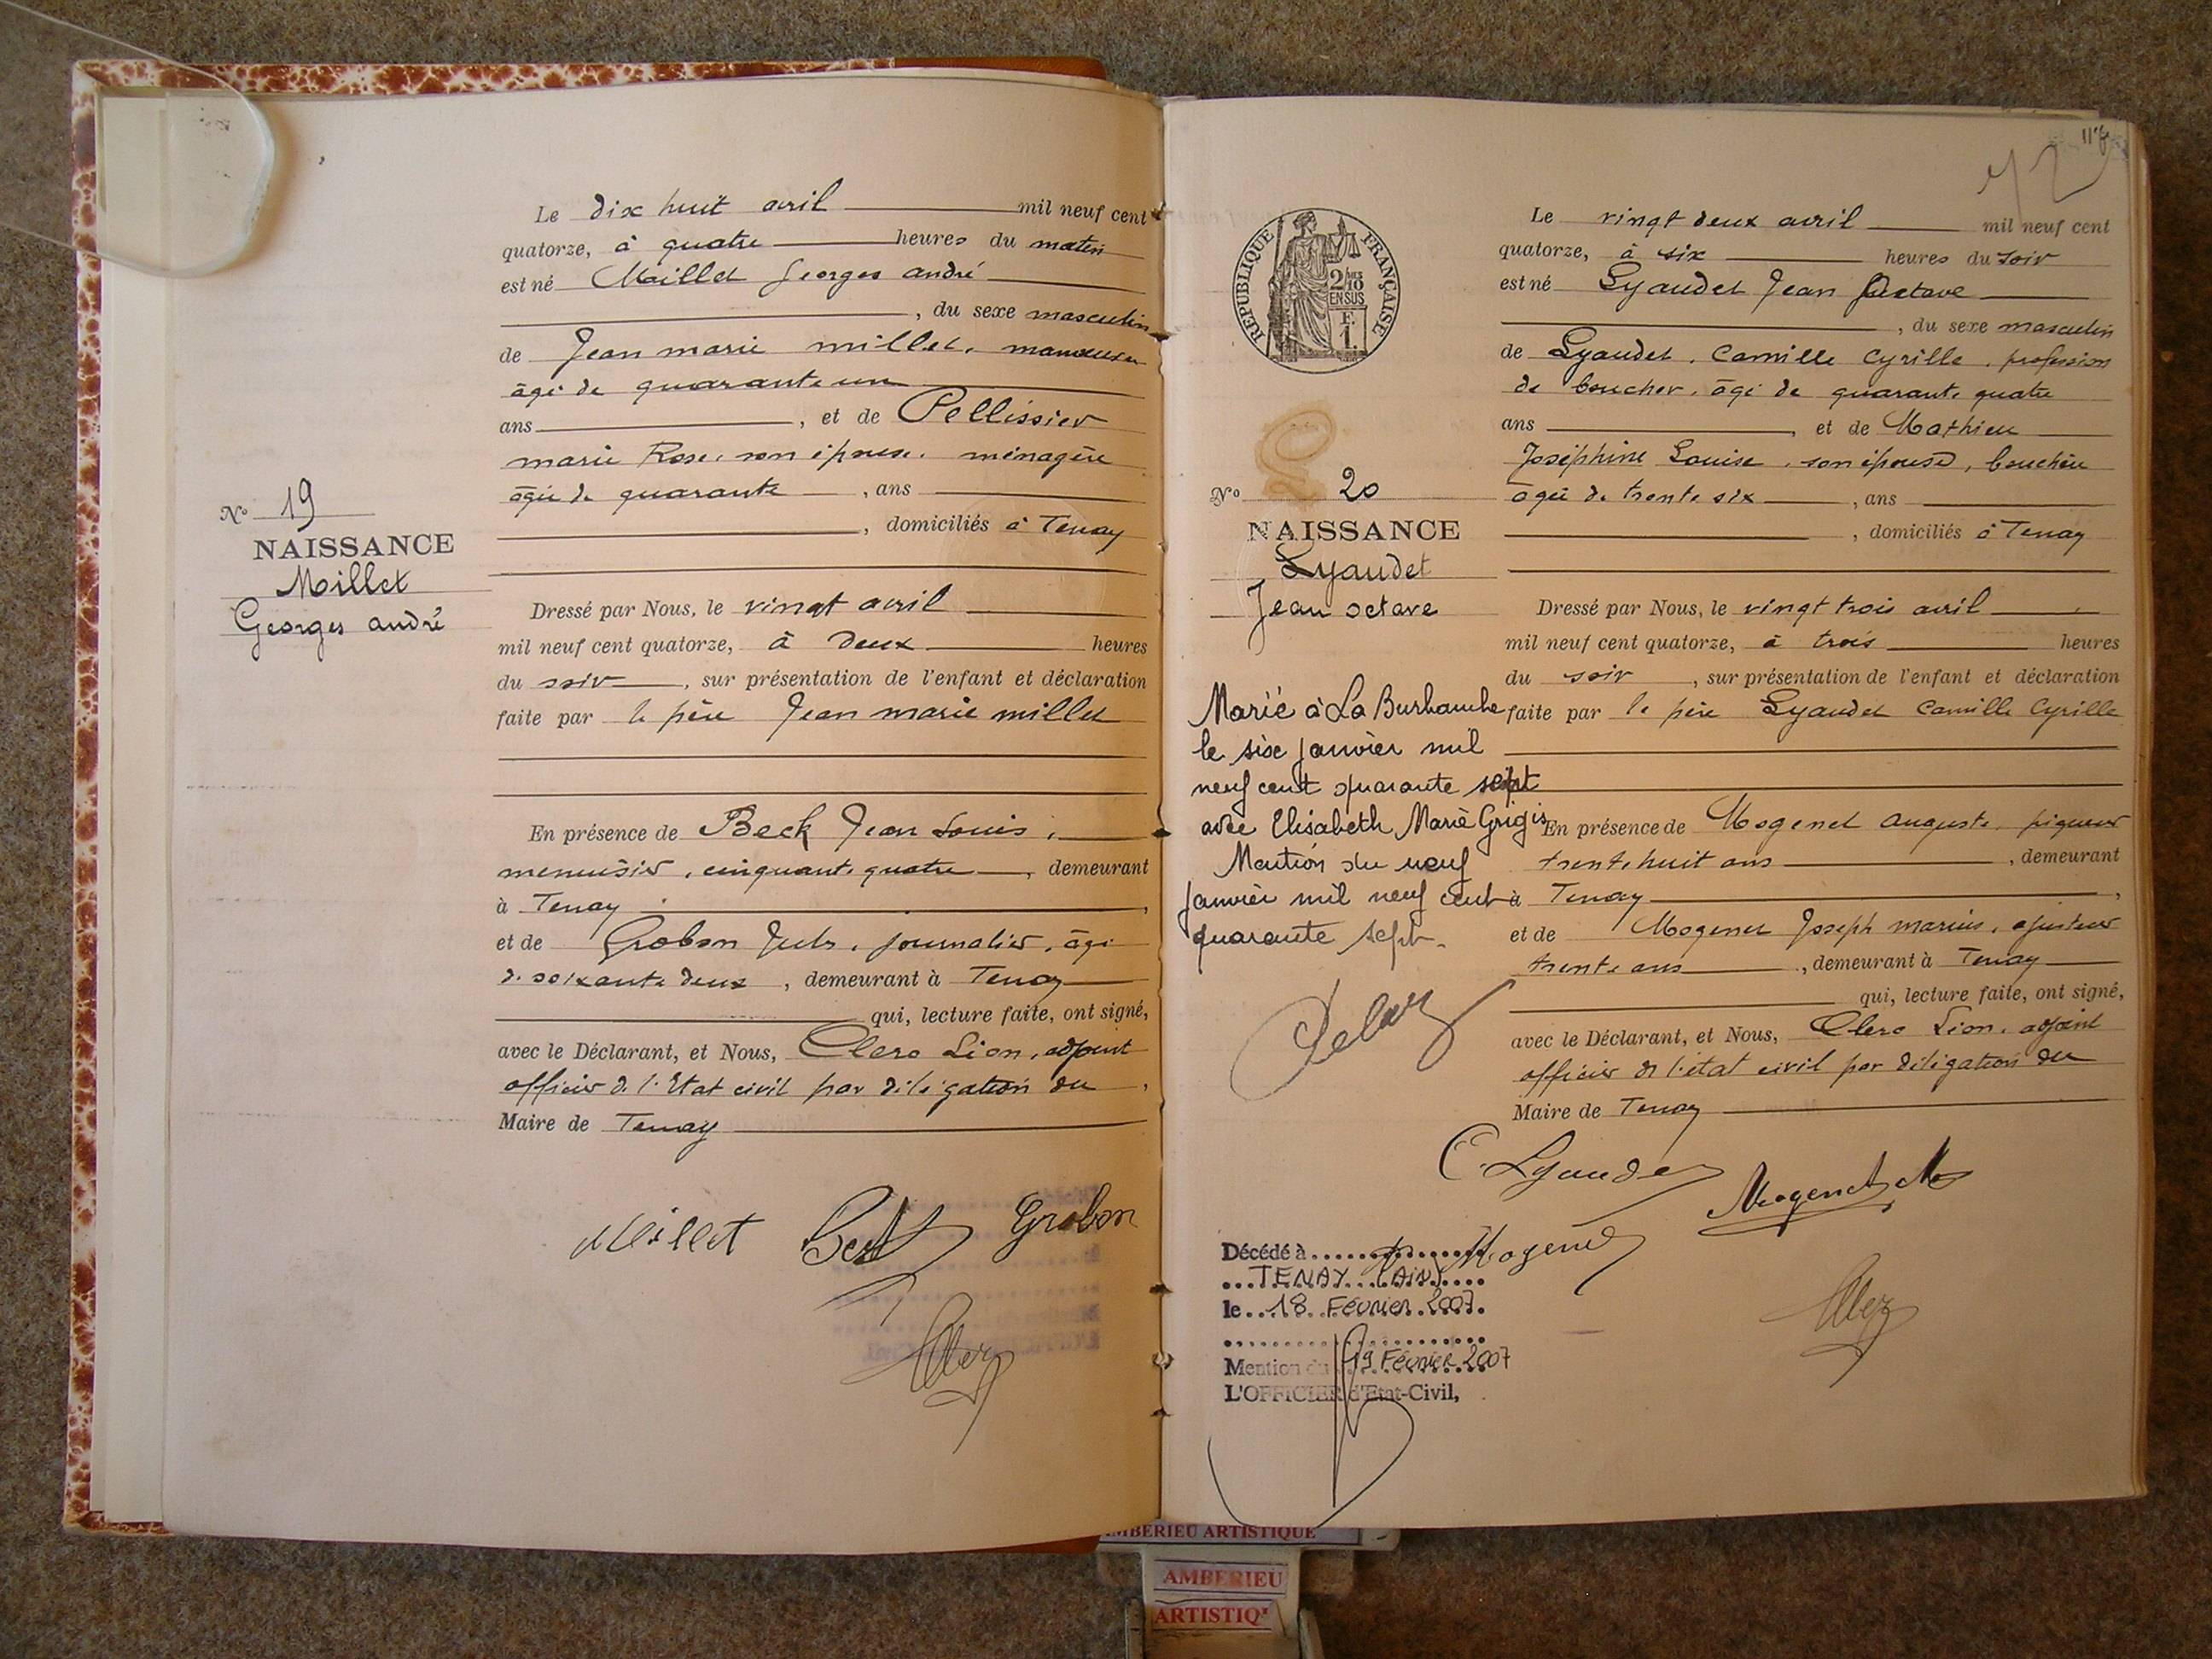 Le dix huit avril mil neuf cent
quatorze, à quatre heures du matin
est né Millet Georges andré
, du sexe masculin
de Jean marie millet, manœuvre
âgé de quarante un
ans , et de Pellissier
marie Rose, son épouse, ménagère
âgée de quarante , ans
, domiciliés à Tenay
No 19
NAISSANCE
Millet
Georges andré
Dressé par Nous, le vingt avril
mil neuf cent quatorze, à deux heures
du soir , sur présentation de l'enfant et déclaration
faite par le père Jean marie millet
En présence de Beck Jean Louis,
menuisier, cinquante quatre , demeurant
à Tenay ,
et de Grobon Jules, journalier, âgé
de soixante deux , demeurant à Tenay
qui, lecture faite, ont signé,
avec le Déclarant, et Nous, Clerc Léon, adjoint
officier de l'Etat civil par délégation du ,
Maire de Tenay
Millet Beck Grobon
117
72
REPUBLIQUE FRANÇAISE
2/10 EN SUS
F. 1.
Le vingt deux avril mil neuf cent
quatorze, à six heures du soir
est né Lyaudet Jean Octave
, du sexe masculin
de Lyaudet, Camille Cyrille, profession
de boucher, âgé de quarante quatre
ans , et de Mathieu
Joséphine Louise, son épouse, bouchère
âgée de trente six , ans
, domiciliés à Tenay
No 20
NAISSANCE
Lyaudet
Jean octave
Dressé par Nous, le vingt trois avril
mil neuf cent quatorze, à trois heures
du soir , sur présentation de l'enfant et déclaration
faite par le père Lyaudet Camille Cyrille
Marié à La Burbanche
le six janvier mil
neuf cent quarante sept
avec Elisabeth Marie Grigis
Mention du neuf
janvier mil neuf cent
quarante sept.
En présence de Mogenet auguste, piqueur
trente huit ans , demeurant
à Tenay ,
et de Mogenet Joseph marius, ajusteur
trente ans , demeurant à Tenay
qui, lecture faite, ont signé,
avec le Déclarant, et Nous, Clerc Léon, adjoint
officier de l'état civil par délégation du
Maire de Tenay
C. Lyaudet Mogenet
Mogenet
Décédé à
TENAY (AIN)
le 18 Février 2007
Mention du 19 Février 2007
L'OFFICIER d'Etat-Civil,
AMBERIEU ARTISTIQUE
AMBERIEU
ARTISTIQ